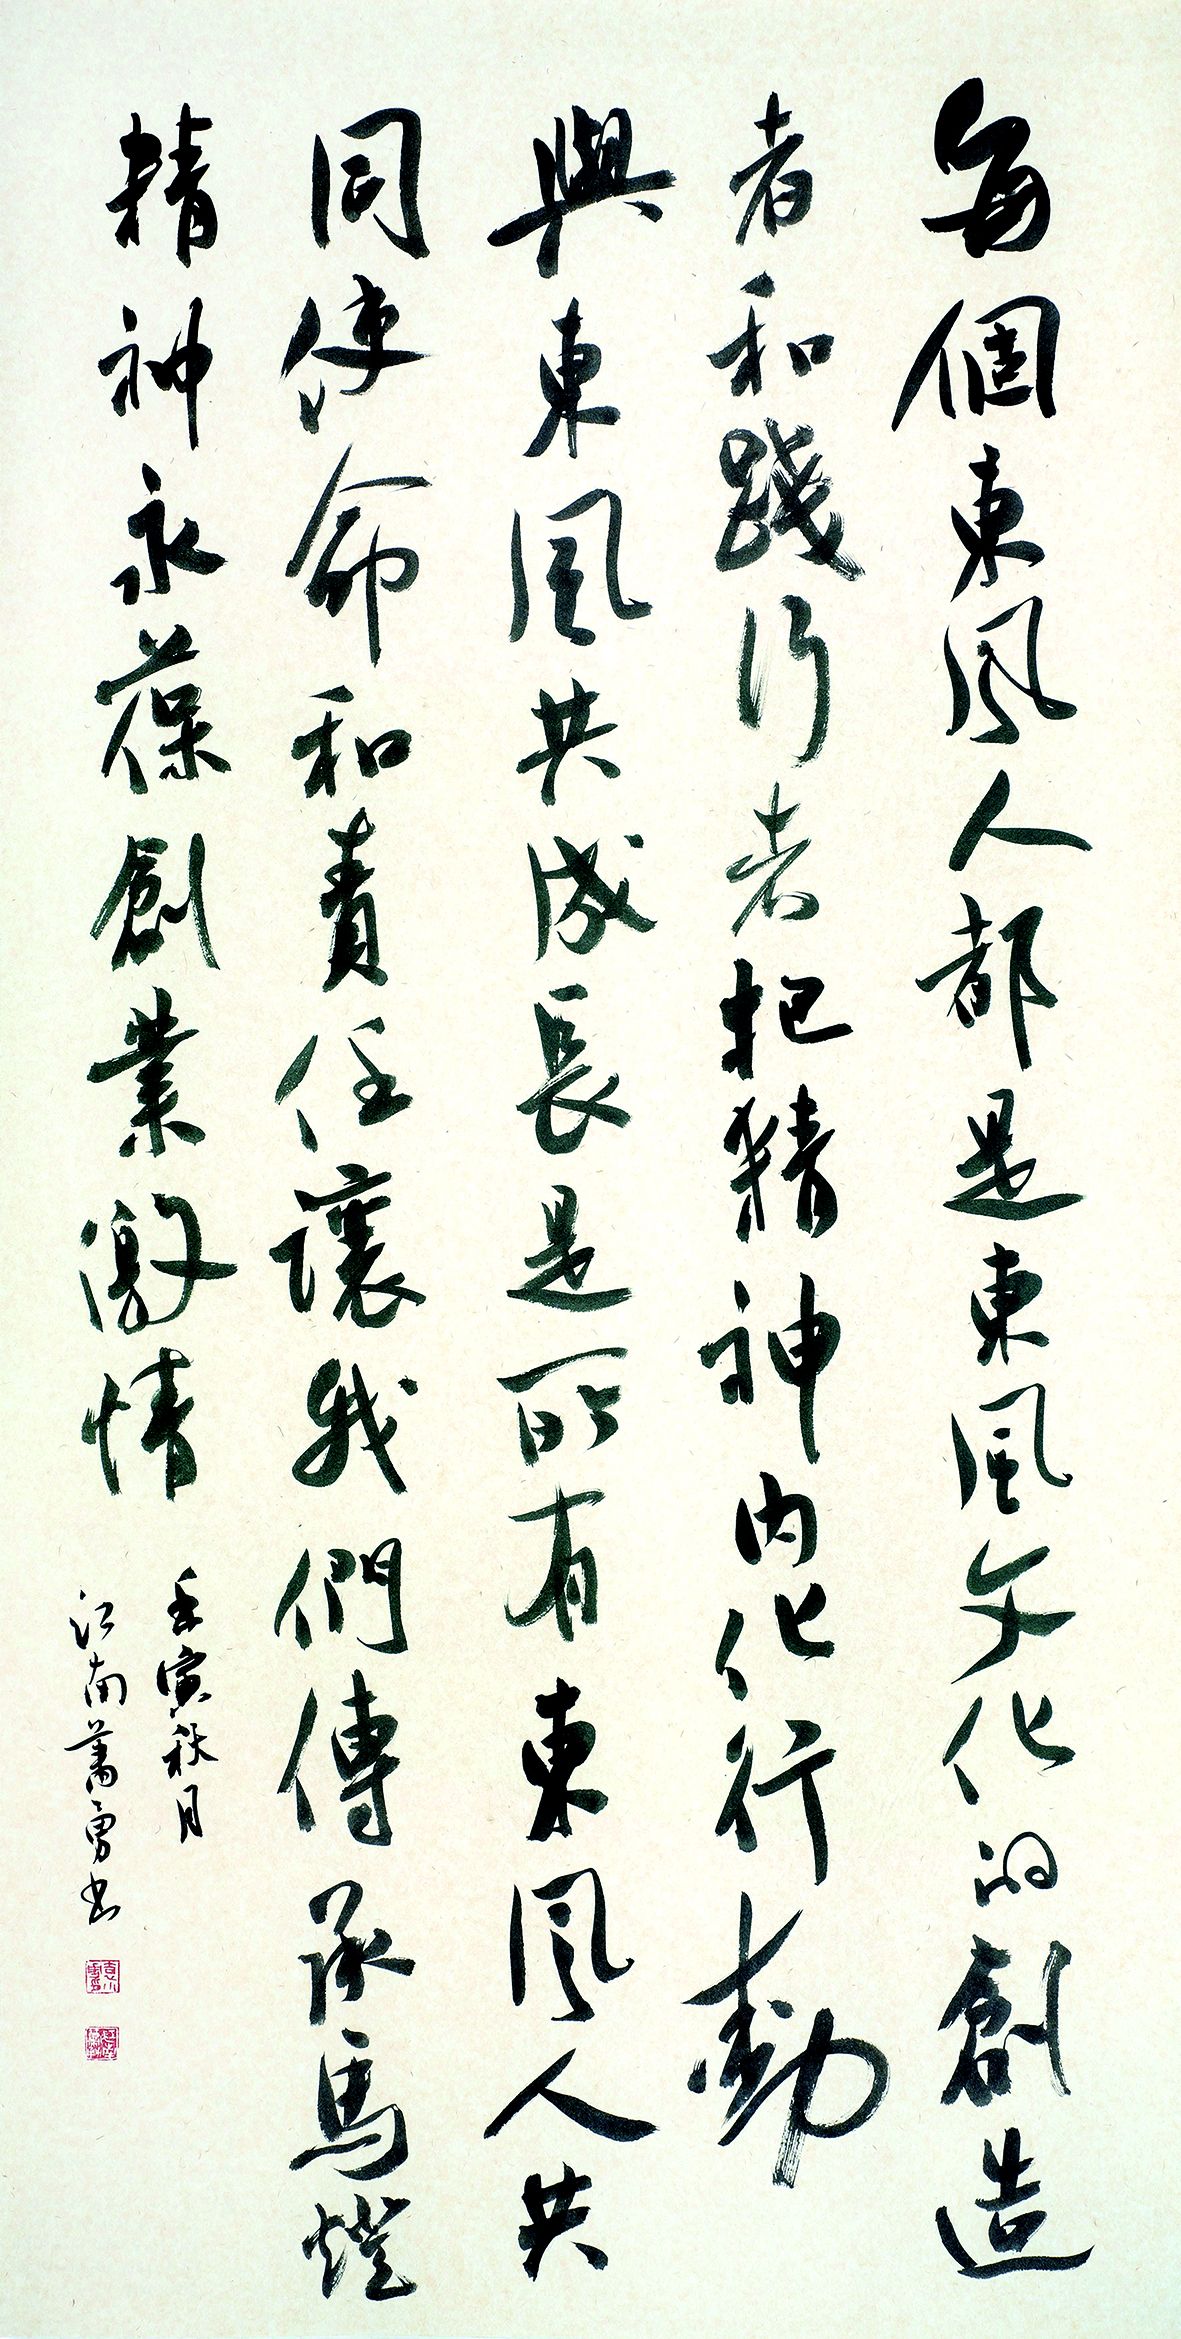 每個東風人都是東風文化的創造
者和踐行者把精神内化行動
與東風共成長是所有東風人共
同使命和責任讓我們傳承馬燈
精神永葆創業激情
壬寅秋月
江南萧勇书